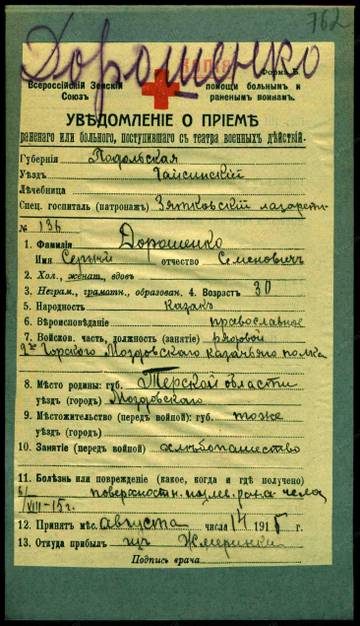 762
Дорошенко
Форма
Всероссійскій Земскій
Союзъ
помощи больнымъ и
раненымъ воинамъ.
УВѢДОМЛЕНІЕ О ПРІЕМѢ
раненаго или больного, поступившаго съ театра военныхъ дѣйствій.
Губернія Подольская
Уѣздъ Гайсинскій
Лѣчебница
Спец. госпиталь (патронажъ) Зятковскій лазаретъ
№ 136
1. Фамилія Дорошенко
Имя Сергѣй отчество Семеновичъ
2. Хол., женат., вдовъ
3. Неграм., грамотн., образован. 4. Возрастъ 30
5. Народность казакъ
6. Вѣроисповѣданіе православное
7. Войсков. часть, должность (занятіе) рядовой
Горского Моздовскаго казачьяго полка
8. Мѣсто родины: губ. Терской области
уѣздъ (городъ) Моздовскаго
9. Мѣстожительство (передъ войной): губ. тоже
уѣздъ (городъ)
10. Занятіе (передъ войной) хлѣбопашество
11. Болѣзнь или поврежденіе (какое, когда и гдѣ получено)
поверхностн. рана чела
VIII-15 г.
12. Принятъ мѣс. августа числа 14 1915 г.
13. Откуда прибылъ изъ Жмеринки
Подпись врача